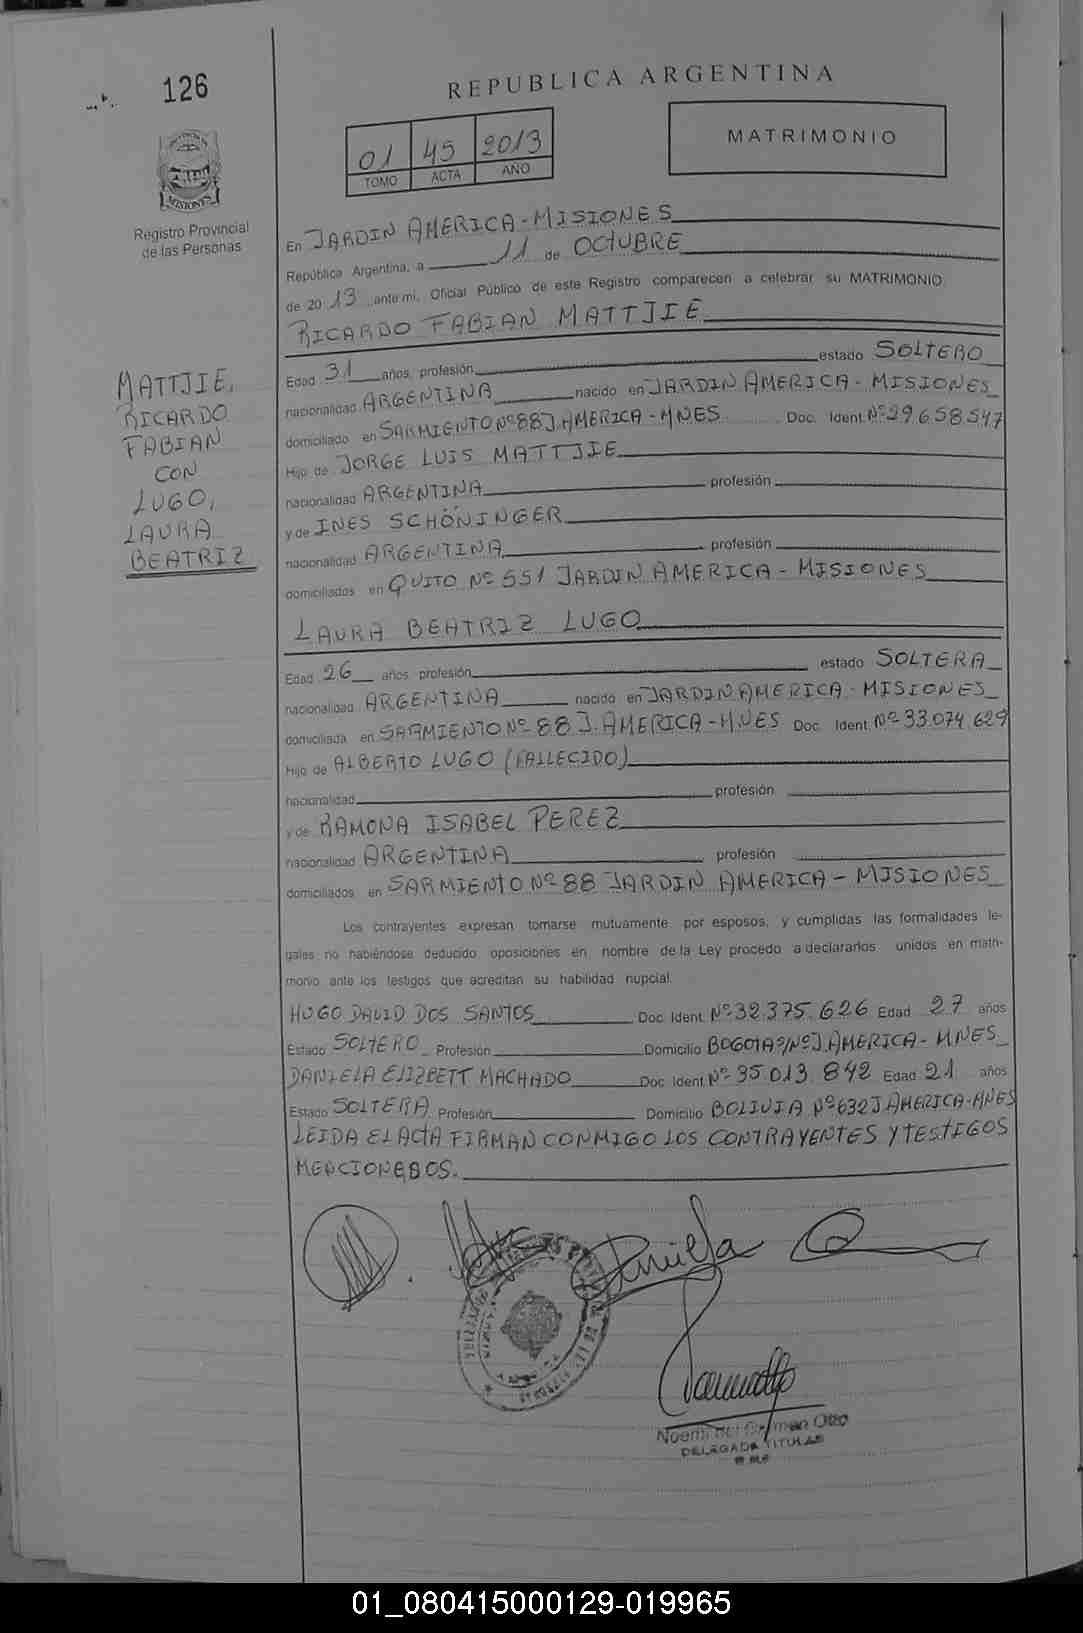 126
REPUBLICA ARGENTINA
01 45 2013
TOMO ACTA AÑO
MATRIMONIO
MISIONES
Registro Provincial
de las Personas
En JARDIN AMERICA-MISIONES
República Argentina, a 11 de OCTUBRE
de 2013 ante mi, Oficial Público de este Registro comparecen a celebrar su MATRIMONIO
RICARDO FABIAN MATTJIE
Edad 31 años, profesión estado SOLTERO
nacionalidad ARGENTINA nacido en JARDIN AMERICA-MISIONES
domiciliado en SARMIENTO Nº88 J. AMERICA-MNES Doc. Ident. Nº29.658.547
Hijo de JORGE LUIS MATTJIE
nacionalidad ARGENTINA profesión
y de INES SCHÖNINGER
nacionalidad ARGENTINA profesión
domiciliados en QUITO Nº 551 JARDIN AMERICA-MISIONES
MATTJIE,
RICARDO
FABIAN
CON
LUGO,
LAURA
BEATRIZ
LAURA BEATRIZ LUGO
Edad 26 años profesión estado SOLTERA
nacionalidad ARGENTINA nacido en JARDIN AMERICA-MISIONES
domiciliada en SARMIENTO Nº 88 J. AMERICA-MNES Doc. Ident. Nº33.074.629
Hijo de ALBERTO LUGO (FALLECIDO)
nacionalidad profesión
y de RAMONA ISABEL PEREZ
nacionalidad ARGENTINA profesión
domiciliados en SARMIENTO Nº 88 JARDIN AMERICA-MISIONES
Los contrayentes expresan tomarse mutuamente por esposos, y cumplidas las formalidades le-
gales no habiéndose deducido oposiciones en nombre de la Ley procedo a declararlos unidos en matri-
monio ante los testigos que acreditan su habilidad nupcial.
HUGO DAVID DOS SANTOS Doc. Ident. Nº32.375.626 Edad 27 años
Estado SOLTERO Profesión Domicilio BOGOTA S/Nº J. AMERICA-MNES
DANIELA ELIZBETT MACHADO Doc. Ident. Nº 35.013.842 Edad 21 años
Estado SOLTERA Profesión Domicilio BOLIVIA Nº632 J AMERICA-MNES
LEIDA EL ACTA FIRMAN CONMIGO LOS CONTRAYENTES Y TESTIGOS
MENCIONADOS.
Noemi del Carmen Otto
DELEGADA TITULAR
01_080415000129-019965